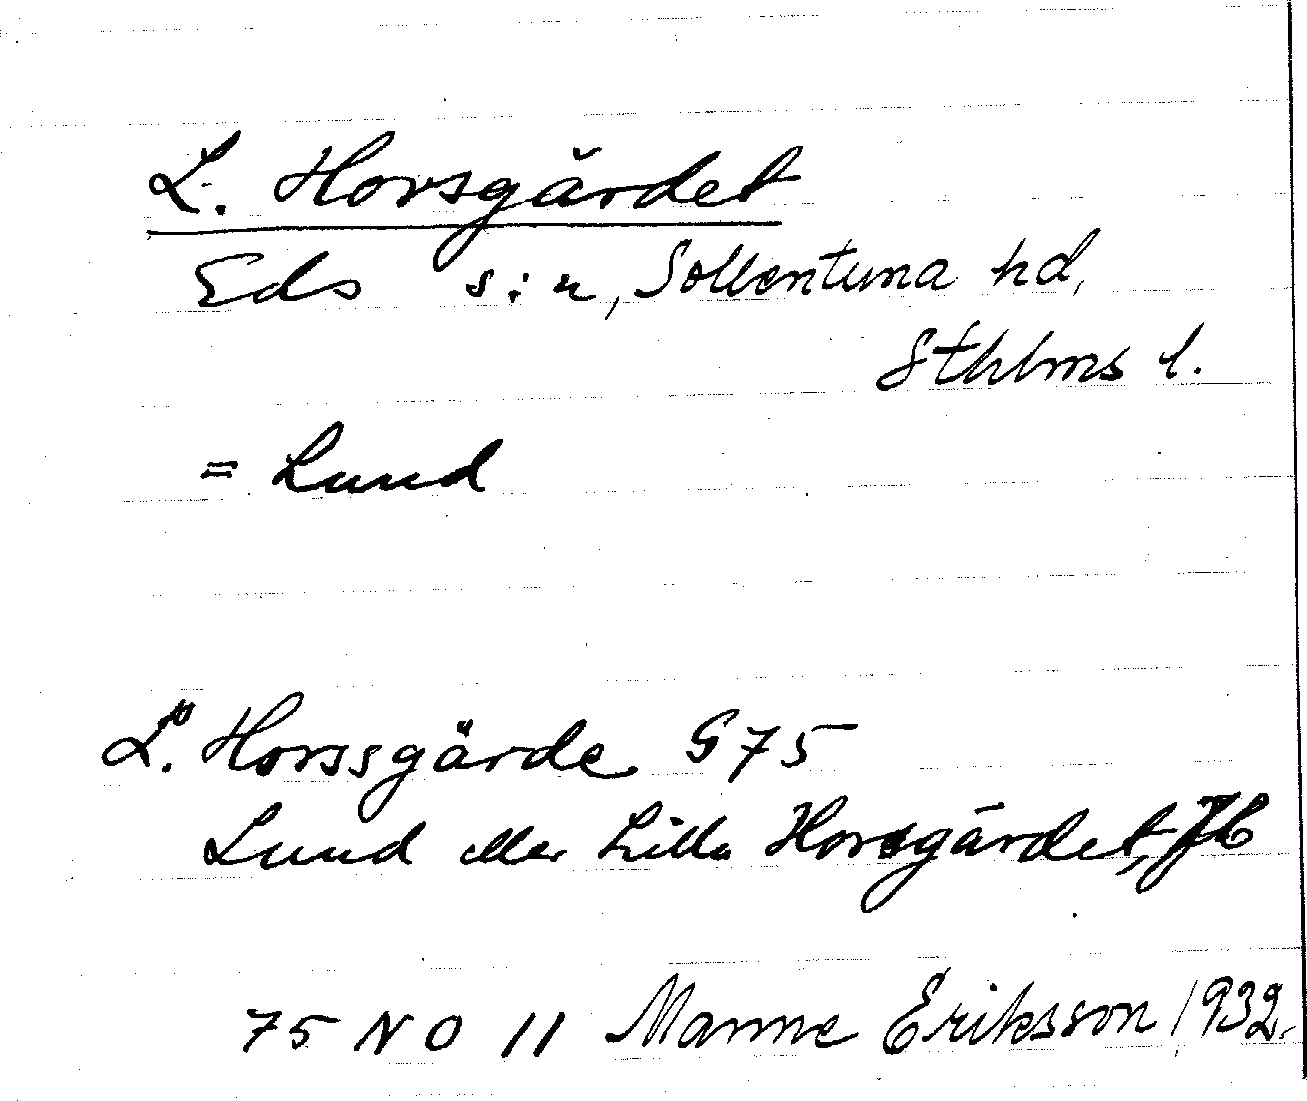 L. Horsgärdet
Eds s:n, Sollentuna hd,
Sthlms l.
= Lund
L:a Horssgärde G 75
Lund eller Lilla Horsgärdet, Jb
75 NO 11 Manne Eriksson 1932.